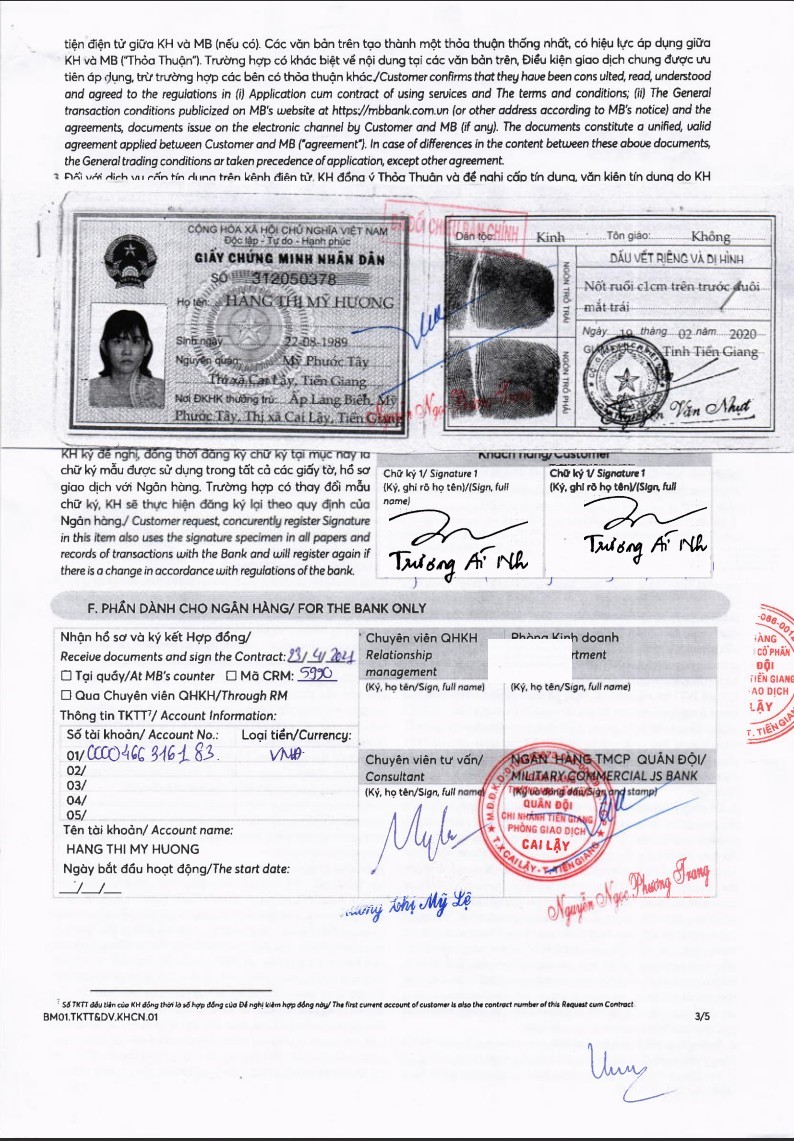 tiện điện tử giữa KH và MB (nếu có). Các văn bản trên tạo thành một thỏa thuận thống nhất, có hiệu lực áp dụng giữa
KH và MB ("Thỏa Thuận"). Trường hợp có khác biệt về nội dung tại các văn bản trên, Điều kiện giao dịch chung được ưu
tiên áp dụng, trừ trường hợp các bên có thỏa thuận khác./Customer confirms that they have been cons ulted, read, understood
and agreed to the regulations in (i) Application cum contract of using services and The terms and conditions; (ii) The General
transaction conditions publicized on MB's website at https://mbbank.com.vn (or other address according to MB's notice) and the
agreements, documents issue on the electronic channel by Customer and MB (if any). The documents constitute a unified, valid
agreement applied between Customer and MB ("agreement"). In case of differences in the content between these above documents,
the General trading conditions ar taken precedence of application, except other agreement.
3 Đối với dịch vụ cấp tín dụng trên kênh điện tử, KH đồng ý Thỏa Thuận và đề nghị cấp tín dụng, văn kiện tín dụng do KH
CỘNG HÒA XÃ HỘI CHỦ NGHĨA VIỆT NAM
Độc lập - Tự do - Hạnh phúc
GIẤY CHỨNG MINH NHÂN DÂN
SỐ 312050378
Họ tên: HANG THỊ MỸ HƯƠNG
Sinh ngày 22-08-1989
Nguyên quán: Mỹ Phước Tây
Thị xã Cai Lậy, Tiền Giang
Nơi ĐKHK thường trú: Ấp Láng Biển, Mỹ
Phước Tây, Thị xã Cai Lậy, Tiền Giang
ĐÃ ĐỐI CHIẾU BẢN CHÍNH
Dân tộc: Kinh Tôn giáo: Không
NGÓN TRỎ TRÁI
NGÓN TRỎ PHẢI
DẤU VẾT RIÊNG VÀ DỊ HÌNH
Nốt ruồi c1cm trên trước đuôi
mắt trái
Ngày 19 tháng 02 năm 2020
Tỉnh Tiền Giang
Nguyễn Văn Nhựt
Nguyễn Ngọc Phương Trang
KH ký đề nghị, đồng thời đăng ký chữ ký tại mục này là
chữ ký mẫu được sử dụng trong tất cả các giấy tờ, hồ sơ
giao dịch với Ngân hàng. Trường hợp có thay đổi mẫu
chữ ký, KH sẽ thực hiện đăng ký lại theo quy định của
Ngân hàng./ Customer request, concurently register Signature
in this item also uses the signature specimen in all papers and
records of transactions with the Bank and will register again if
there is a change in accordance with regulations of the bank.
Khách hàng/Customer
Chữ ký 1/ Signature 1
(Ký, ghi rõ họ tên)/(Sign, full
name)
Trương Ái Nh
Chữ ký 1/ Signature 1
(Ký, ghi rõ họ tên)/(Sign, full
Trương Ái Nh
F. PHẦN DÀNH CHO NGÂN HÀNG/ FOR THE BANK ONLY
Nhận hồ sơ và ký kết Hợp đồng/
Receive documents and sign the Contract: 23/4/2021
☐ Tại quầy/At MB's counter ☐ Mã CRM: 5990
☐ Qua Chuyên viên QHKH/Through RM
Thông tin TKTT⁷/ Account Information:
Số tài khoản/ Account No.: Loại tiền/Currency:
01/ 0000466316183 VNĐ
02/
03/
04/
05/
Tên tài khoản/ Account name:
HANG THI MY HUONG
Ngày bắt đầu hoạt động/The start date:
__/__/__
Chuyên viên QHKH
Relationship
management
(Ký, họ tên/Sign, full name)
Phòng Kinh doanh
rtment
(Ký, họ tên/Sign, full name)
Chuyên viên tư vấn/
Consultant
(Ký, họ tên/Sign, full name)
NGÂN HÀNG TMCP QUÂN ĐỘI/
MILITARY COMMERCIAL JS BANK
(Ký và đóng dấu/Sign and stamp)
QUÂN ĐỘI
CHI NHÁNH TIỀN GIANG
PHÒNG GIAO DỊCH
CAI LẬY
T.X CAI LẬY - T. TIỀN GIANG
Thị Mỹ Lệ
Nguyễn Ngọc Phương Trang
086-0012
HÀNG
CỔ PHẦN
ĐỘI
TIỀN GIANG
GIAO DỊCH
LẬY
T. TIỀN GIANG
⁷ Số TKTT đầu tiên của KH đồng thời là số hợp đồng của Đề nghị kiêm hợp đồng này/ The first current account of customer is also the contract number of this Request cum Contract.
BM01.TKTT&DV.KHCN.01 3/5